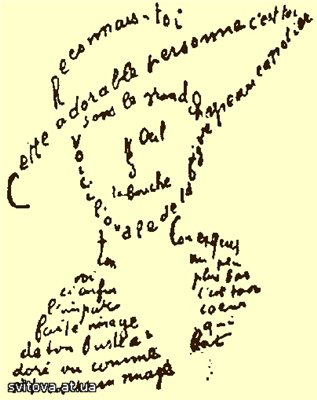 Reconnais-toi
Cette adorable personne c'est toi
sous le grand chapeau canotier
Oeil
Nez
la bouche
Voici l'ovale de ta figure
ton cou exquis
voi
ci enfin
l'impar
faite image
de ton buste a
doré vu comme
à travers un nuage
un peu
plus bas
c'est ton
coeur
qui
bat
svitova.at.ua